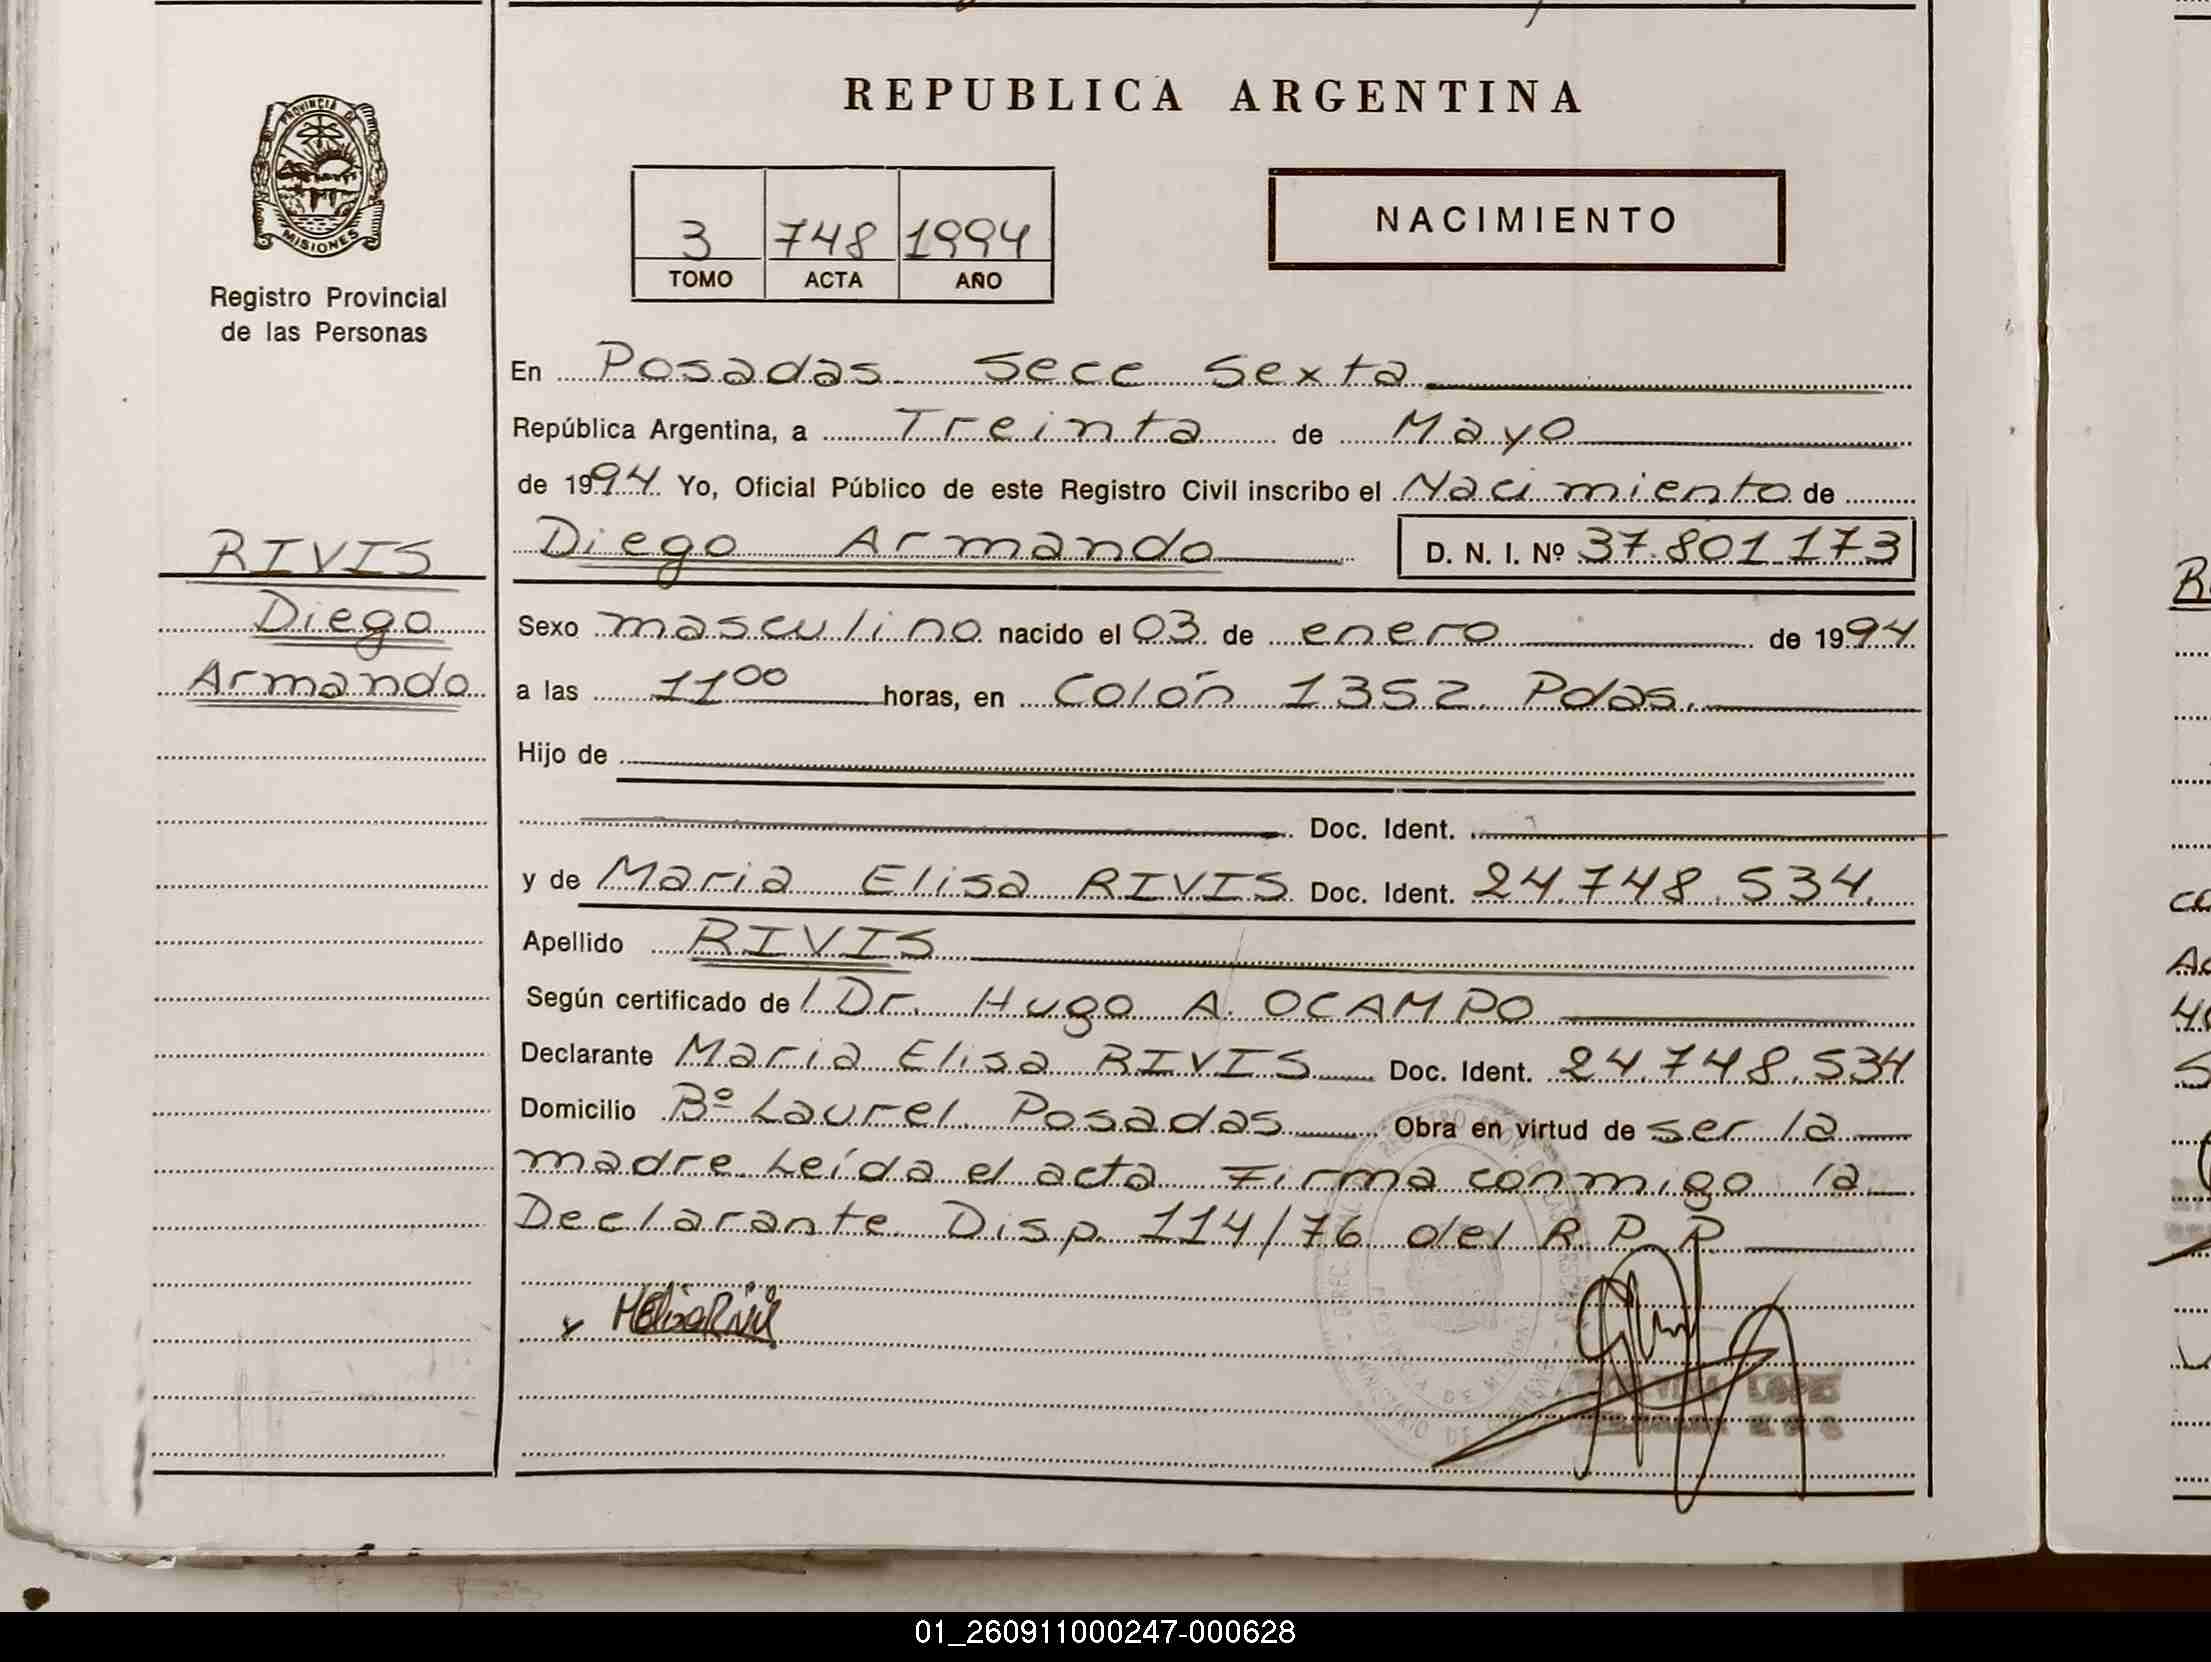 REPUBLICA ARGENTINA
PROVINCIA DE
MISIONES
Registro Provincial
de las Personas
3 748 1994
TOMO ACTA AÑO
NACIMIENTO
En Posadas Secc Sexta
República Argentina, a Treinta de Mayo
de 1994. Yo, Oficial Público de este Registro Civil inscribo el Nacimiento de
Diego Armando D. N. I. Nº 37.801.173
RIVIS
Diego
Armando
Sexo masculino nacido el 03 de enero de 1994.
a las 11 00 horas, en Colón 1352. Pdas.
Hijo de
Doc. Ident.
y de Maria Elisa RIVIS Doc. Ident. 24.748.534.
Apellido RIVIS
Según certificado de l Dr. Hugo A. OCAMPO
Declarante Maria Elisa RIVIS Doc. Ident. 24.748.534
Domicilio Bº Laurel Posadas Obra en virtud de ser la
madre. Leída el acta Firma conmigo la
Declarante. Disp. 114/76 del R.P.P.
LOPEZ
01_260911000247-000628